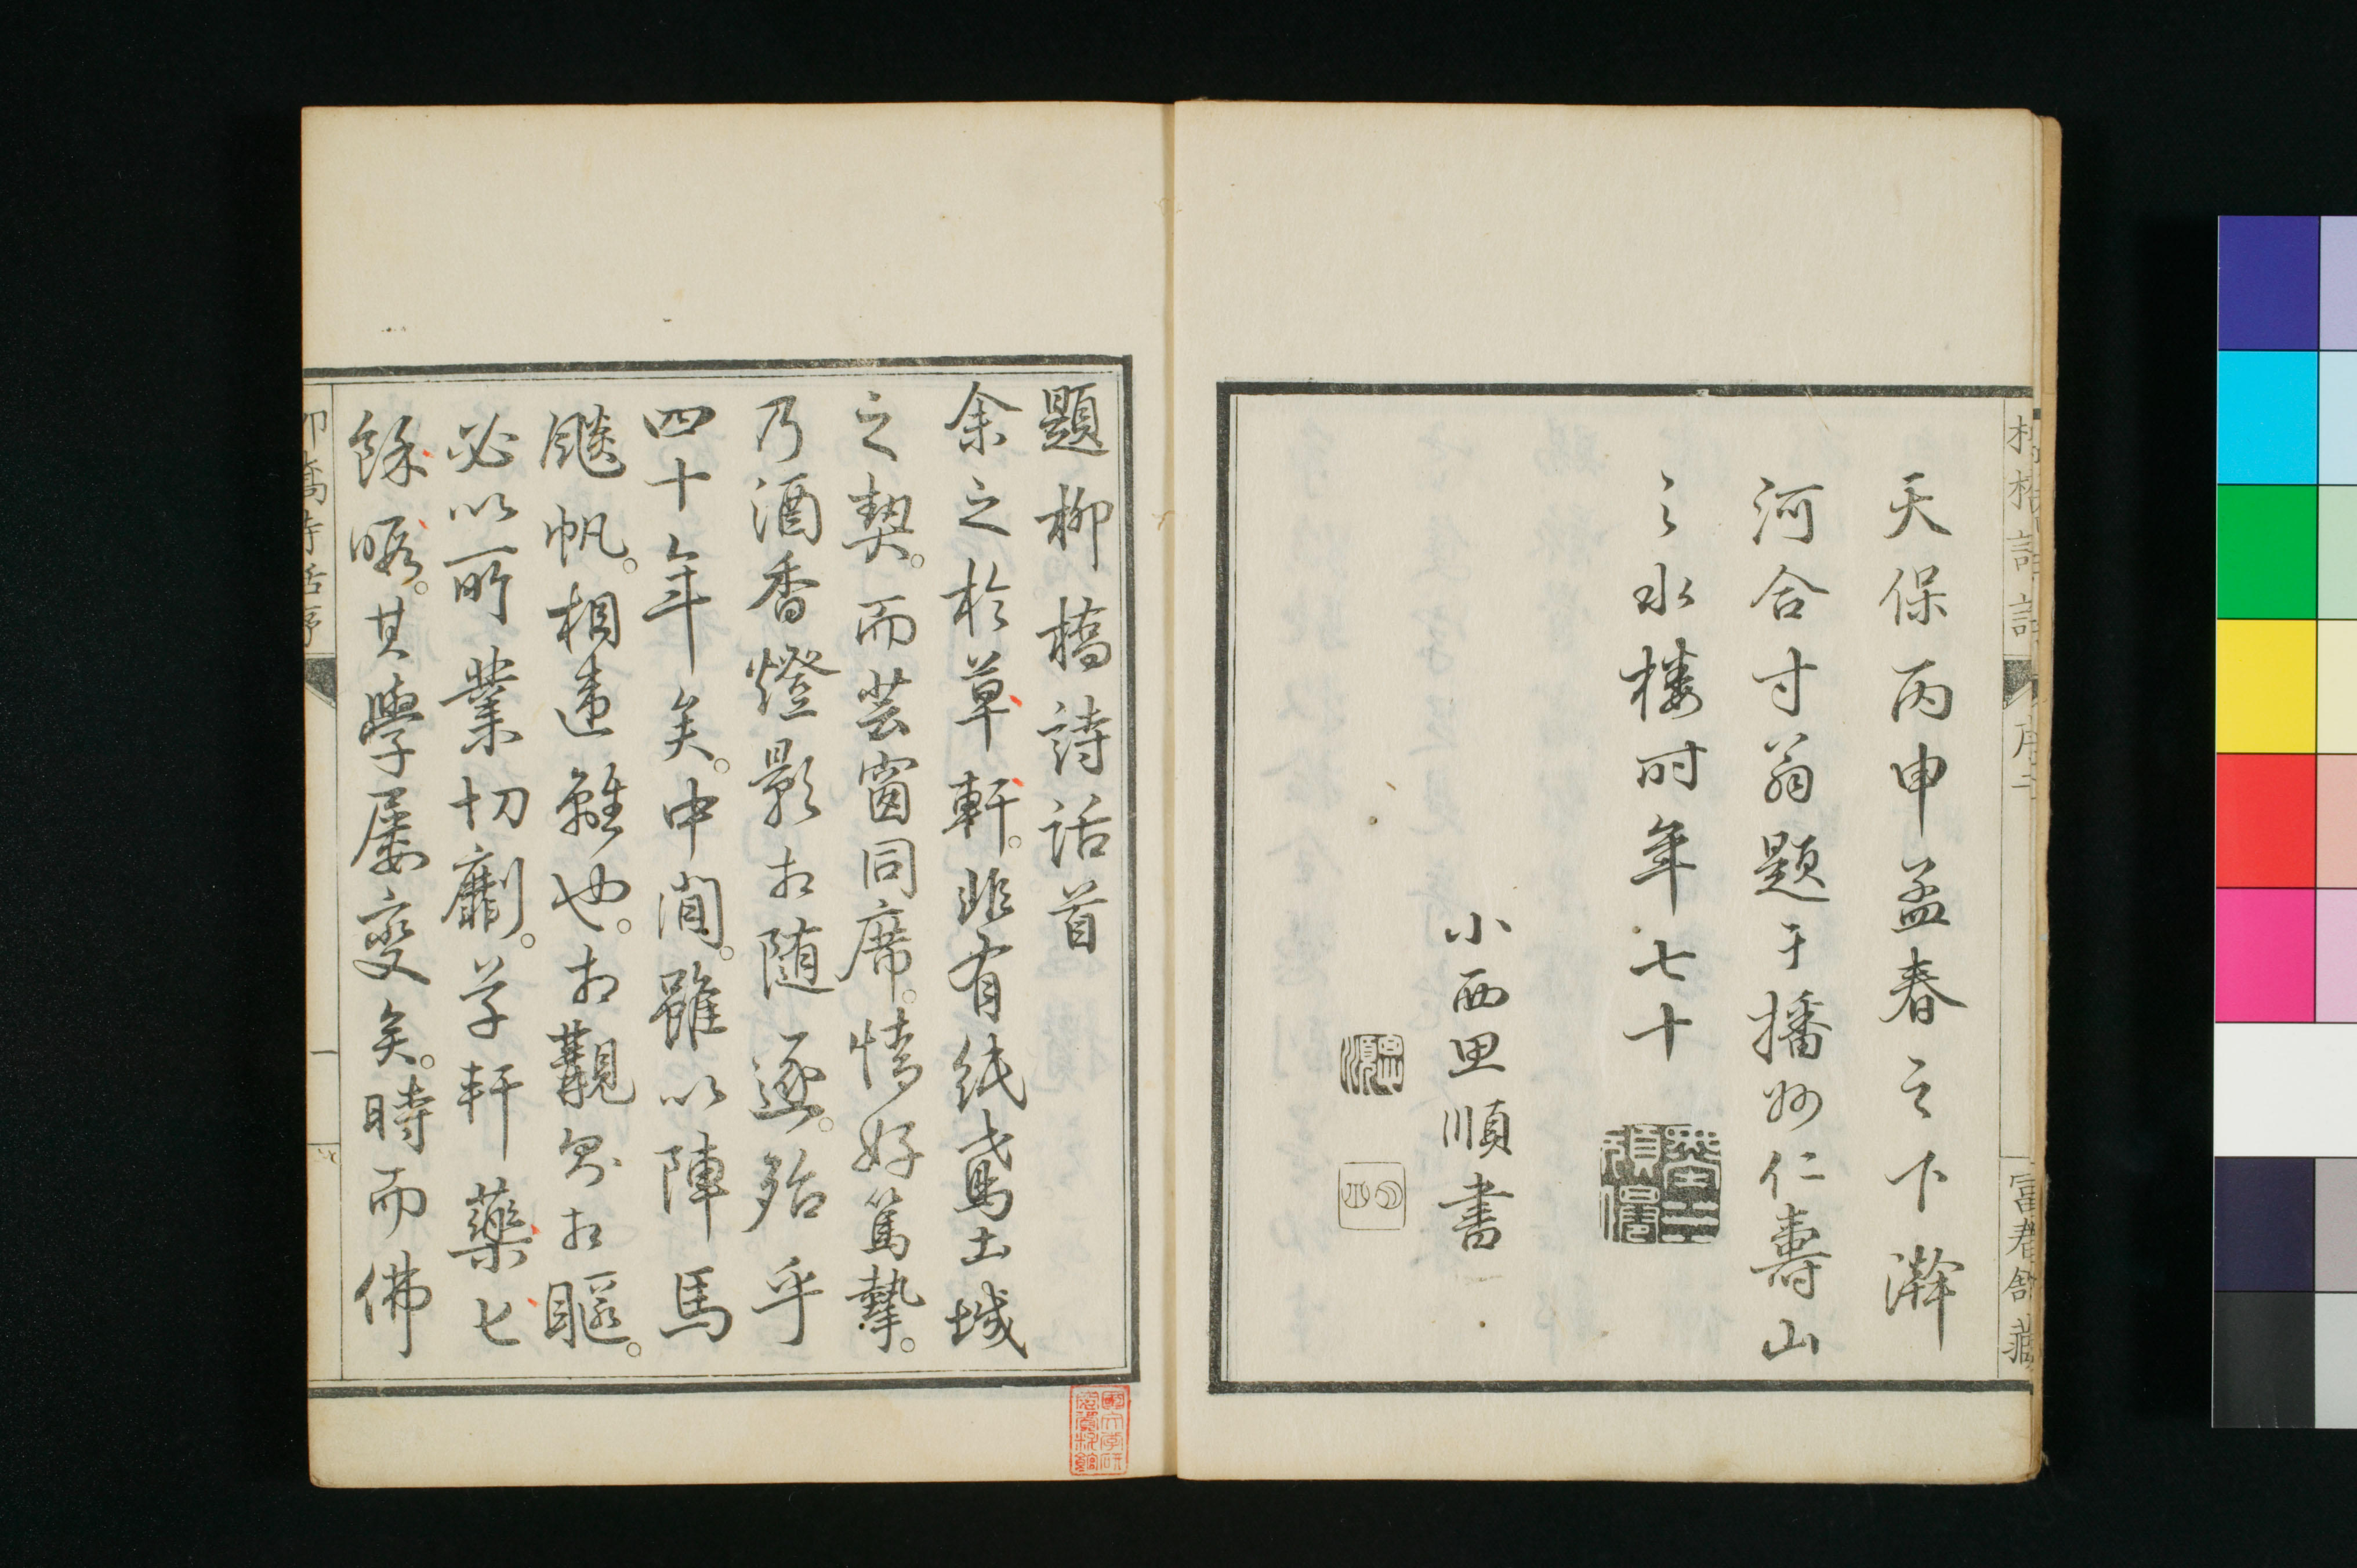 天保丙申孟春之下澣
河合寸翁題于播州仁壽山
之水樓時年七十
小西思順書
序二
富春舎藏
題柳橋詩話首
余之於草軒。非有紙鳶土城
之契。而芸窗同席。情好篤摯。
乃酒香燈影相随逐。殆乎
四十年矣。中間。雖以陣馬
帆。相違離也。相觀必相
必以所業切劘。草軒藥七
餘暇。其學屡變矣。時而佛
柳橋詩話序
一